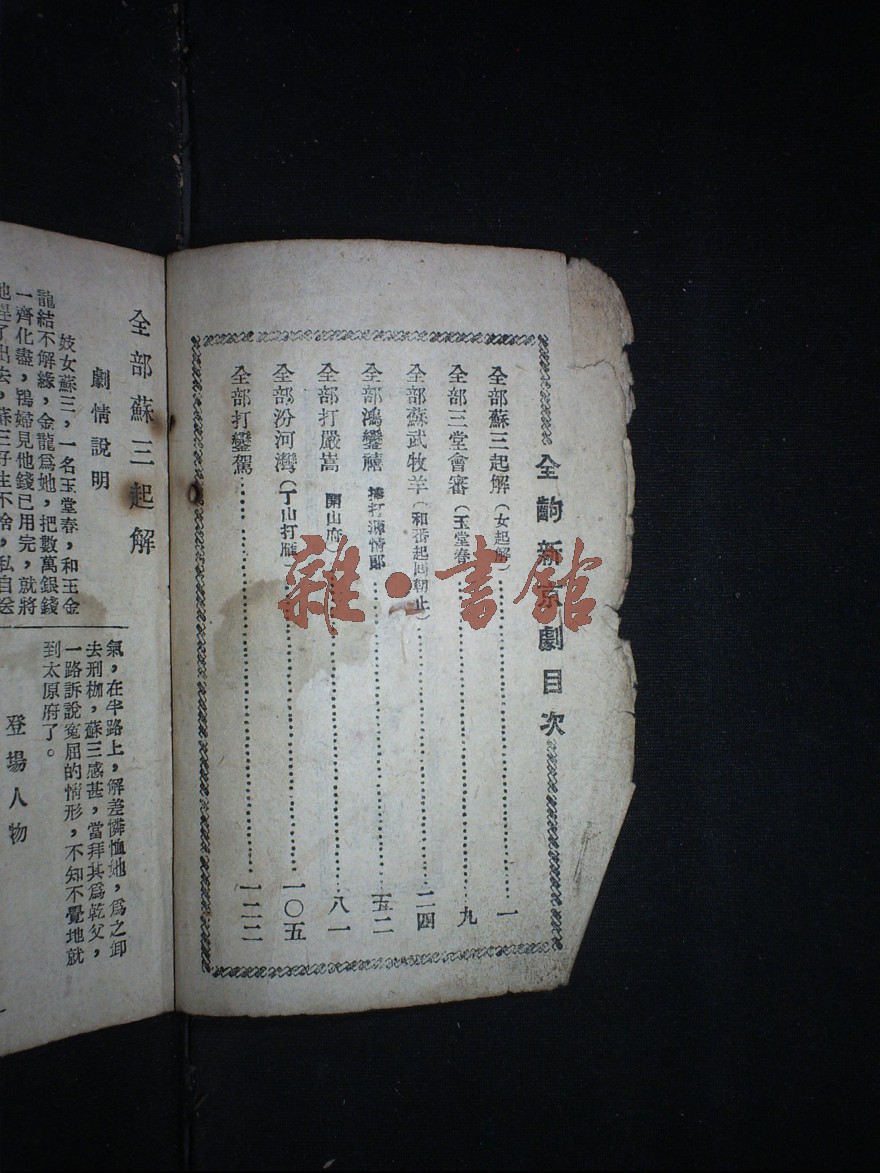 全韵新京劇目次
全部蘇三起解(女起解)一
全部三堂會審(玉堂春)九
全部蘇武牧羊(和番起回朝止)二四
全部鴻鑾禧 棒打薄情郎 五二
全部打嚴嵩 開山府)八一
全部汾河灣(丁山打雁 一〇五
全部打鑾駕 一二二
全部蘇三起解
劇情說明
妓女蘇三,一名玉堂春,和王金
龍結不解緣,金龍爲她,把數萬銀錢
一齊化盡,鴇婦見他錢已用完,就將
他趕了出去,蘇三好生不捨,私自送
氣,在半路上,解差憐恤她,爲之卸
去刑枷,蘇三感甚,當拜其爲乾父,
一路訴說寃屈的情形,不知不覺地就
到太原府了。
登場人物
雜·書館